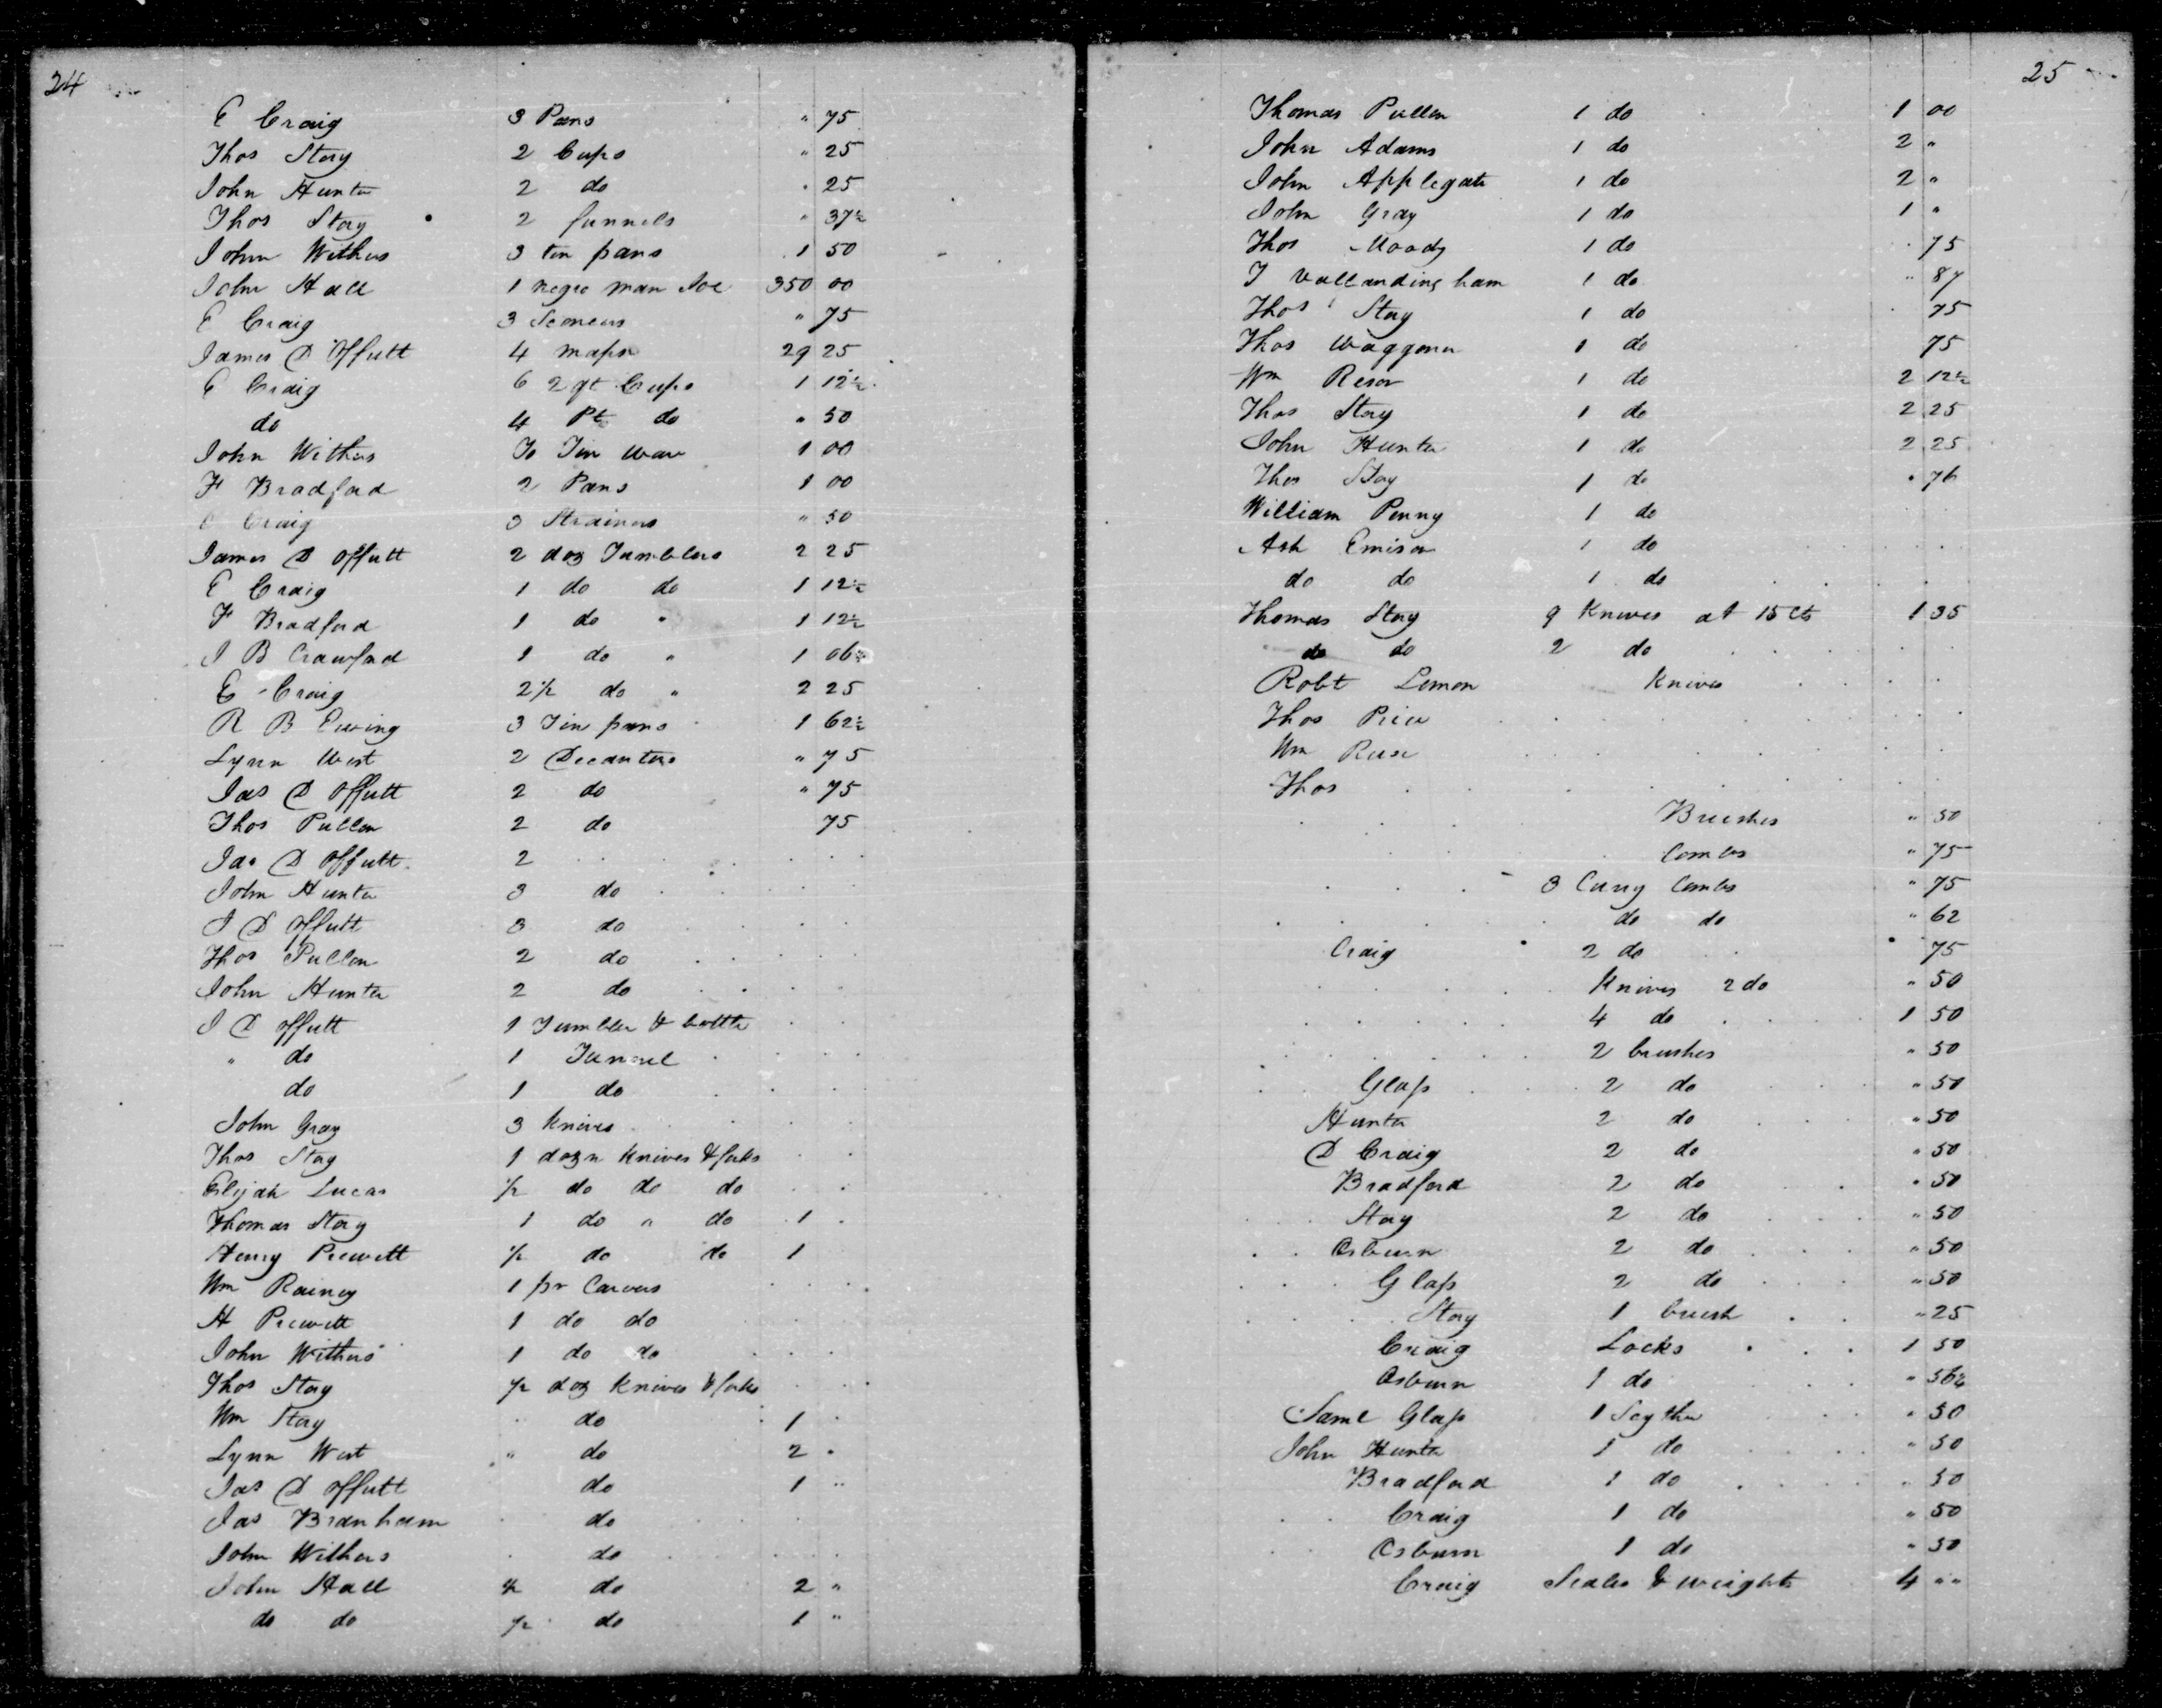 24
E Craig 3 Pans " 75
Thos Story 2 Cups " 25
John Hunter 2 do " 25
Thos Story 2 funnels " 37½
John Withers 3 tin pans 1 50
John Hall 1 negro man Joe 350 00
E Craig 3 Sconces " 75
James D Offutt 4 maps 29 25
E Craig 6 2 qt Cups 1 12½
do 4 Pt do " 50
John Withers To Tin Ware 1 00
F Bradford 2 Pans 1 00
E Craig 3 Strainers " 50
James D Offutt 2 doz Tumblers 2 25
E Craig 1 do do 1 12½
F Bradford 1 do " 1 12½
J B Crawford 1 do " 1 06¼
E Craig 2½ do " 2 25
R B Ewing 3 Tin pans 1 62½
Lynn West 2 Decanters " 75
Jas D Offutt 2 do " 75
Thos Pullen 2 do 75
Jas D Offutt 2
John Hunter 3 do
J D Offutt 3 do
Thos Pullen 2 do
John Hunter 2 do
J D Offutt 1 Tumbler & bottle
" do 1 Funnel
do 1 do
John Gray 3 Knives
Thos Story 1 dozn Knives & forks
Elijah Lucas ½ do do do
Thomas Story 1 do " do 1
Henry Prewett ½ do do 1
Wm Rainey 1 pr Carvers
H Prewett 1 do do
John Withers 1 do do
Thos Story ½ doz Knives & forks
Wm Story do 1
Lynn West " do 2
Jas D Offutt do 1 "
Jas Branham do
John Withers do
John Hall ½ do 2 "
do do ½ do 1 "
25
Thomas Pullen 1 do 1 00
John Adams 1 do 2 "
John Applegate 1 do 2 "
John Gray 1 do 1 "
Thos Moody 1 do 75
J Vallandingham 1 do " 87
Thos Story 1 do 75
Thos Waggoner 1 do 75
Wm Resor 1 do 2 12½
Thos Story 1 do 2 25
John Hunter 1 do 2 25
Thos Story 1 do " 76
William Penny 1 do
Ash Emison 1 do
do do 1 do
Thomas Story 9 Knives at 15 cts 1 35
do do 2 do
Robt Lemon Knives
Thos Price
Wm
Thos
Brushes " 50
Combs " 75
3 Curry Combs " 75
do do " 62
Craig 2 do 75
Knives 2 do " 50
4 do 1 50
2 brushes " 50
Glass 2 do " 50
Hunter 2 do " 50
D Craig 2 do " 50
Bradford 2 do " 50
Story 2 do " 50
Osburn 2 do " 50
Glass 2 do " 50
Story 1 brush " 25
Craig Locks 1 50
Osburn 1 do " 56¼
Saml Glass 1 Scythe " 50
John Hunter 1 do " 50
Bradford 1 do " 50
Craig 1 do " 50
Osburn 1 do " 50
Craig Scales & weights 4 " "